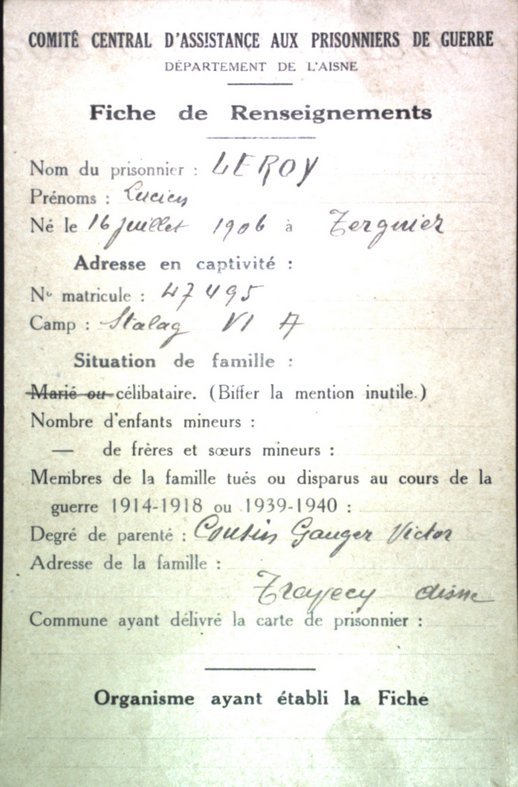 COMITÉ CENTRAL D'ASSISTANCE AUX PRISONNIERS DE GUERRE
DÉPARTEMENT DE L'AISNE
Fiche de Renseignements
Nom du prisonnier : LEROY
Prénoms : Lucien
Né le 16 juillet 1906 à Tergnier
Adresse en captivité :
No matricule : 47495
Camp : Stalag VI A
Situation de famille :
Marié ou célibataire. (Biffer la mention inutile.)
Nombre d'enfants mineurs :
— de frères et sœurs mineurs :
Membres de la famille tués ou disparus au cours de la
guerre 1914-1918 ou 1939-1940 :
Degré de parenté : Cousin Gauger Victor
Adresse de la famille :
Travecy Aisne
Commune ayant délivré la carte de prisonnier :
Organisme ayant établi la Fiche